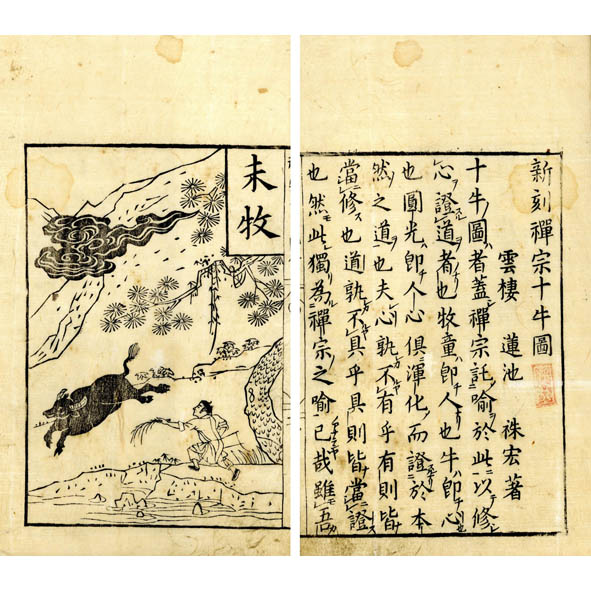 新刻禪宗十牛圖
雲棲 蓮池 祩宏著
十牛圖者蓋禪宗託喻於此以修
心證道者也牧童即人也牛即心
也圓光即人心俱渾化而證於本
然之道也夫心孰不有乎有則皆
當修也道孰不具乎具則皆當證
也然此獨為禪宗之喻已哉雖吾
未牧